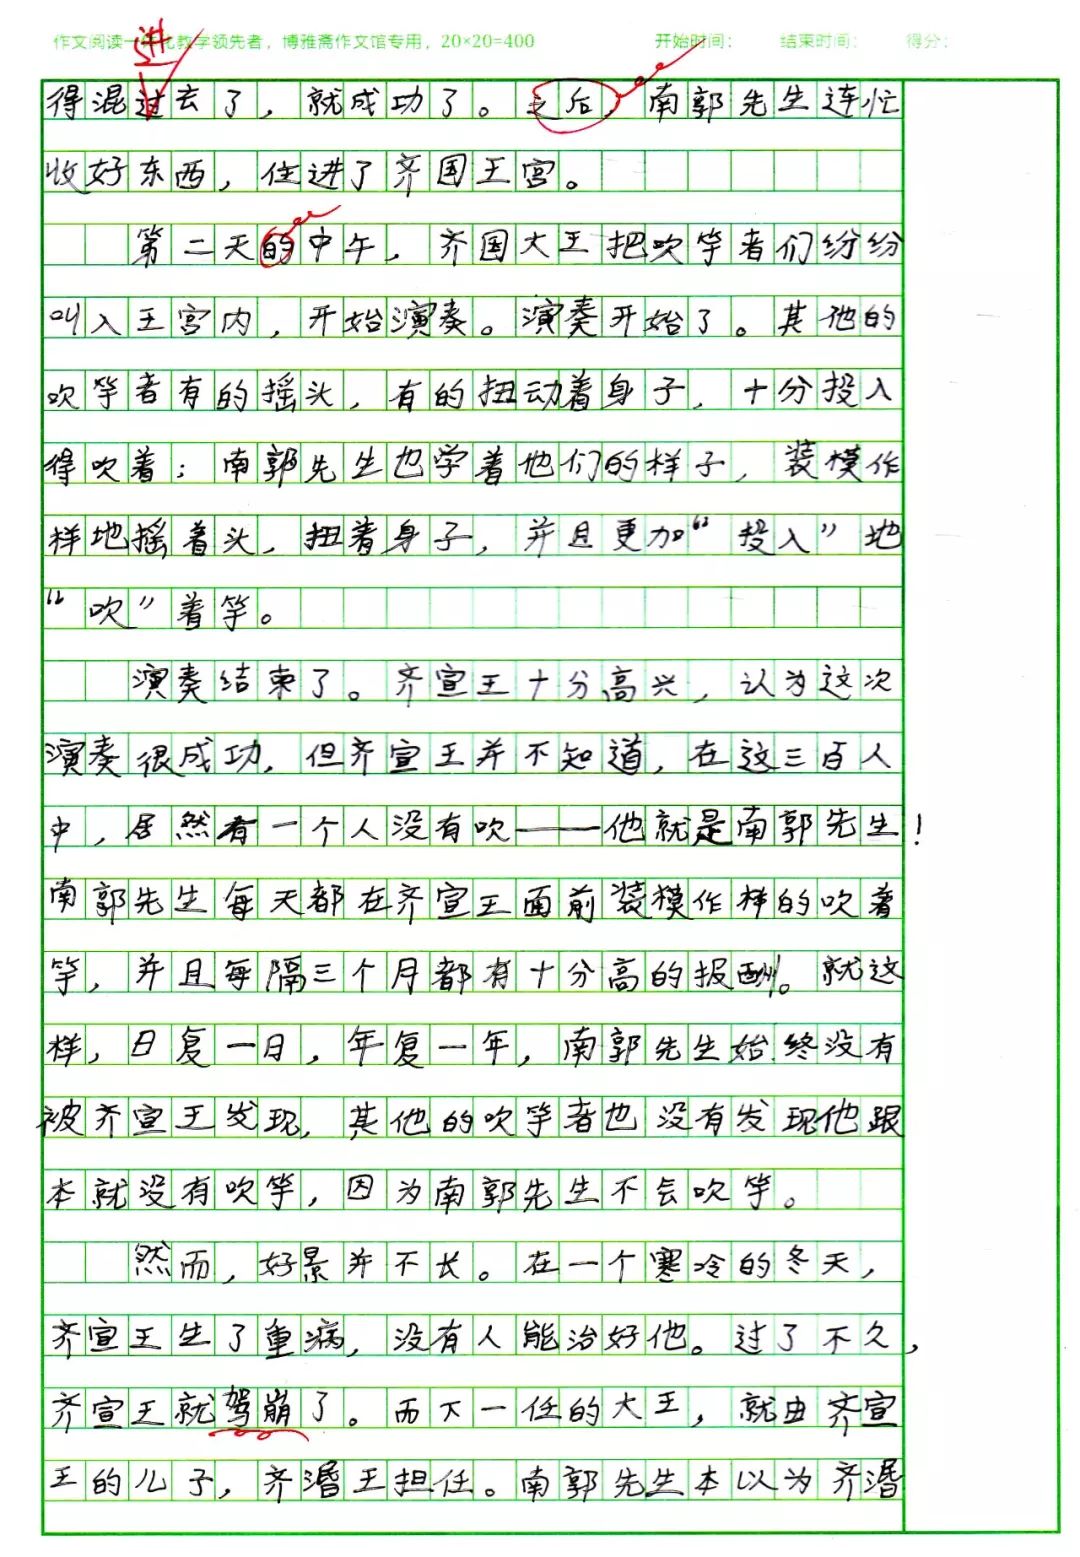 作文阅读一体化教学领先者，博雅斋作文馆专用，20×20=400 开始时间： 结束时间： 得分：
进
得混过去了，就成功了。之后，南郭先生连忙
收好东西，住进了齐国王宫。
第二天的中午，齐国大王把吹竽者们纷纷
叫入王宫内，开始演奏。演奏开始了。其他的
吹竽者有的摇头，有的扭动着身子，十分投入
得吹着；南郭先生也学着他们的样子，装模作
样地摇着头，扭着身子，并且更加“投入”地
“吹”着竽。
演奏结束了。齐宣王十分高兴，认为这次
演奏很成功，但齐宣王并不知道，在这三百人
中，居然有一个人没有吹——他就是南郭先生！
南郭先生每天都在齐宣王面前装模作样的吹着
竽，并且每隔三个月都有十分高的报酬。就这
样，日复一日，年复一年，南郭先生始终没有
被齐宣王发现，其他的吹竽者也没有发现他跟
本就没有吹竽，因为南郭先生不会吹竽。
然而，好景并不长。在一个寒冷的冬天，
齐宣王生了重病，没有人能治好他。过了不久，
齐宣王就驾崩了。而下一任的大王，就由齐宣
王的儿子，齐湣王担任。南郭先生本以为齐湣